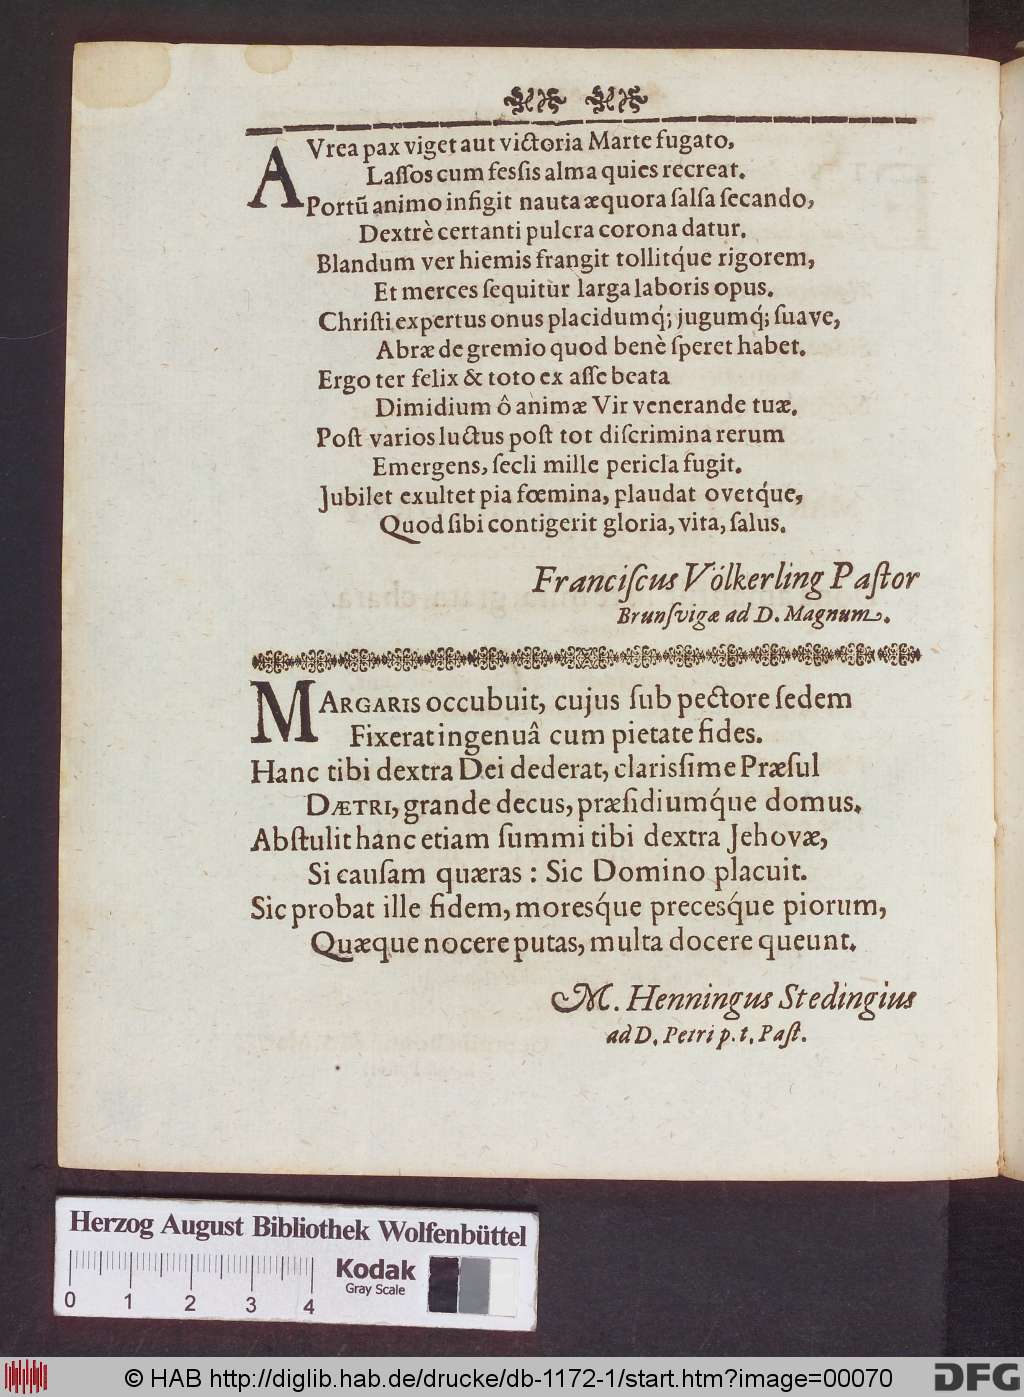 AVrea pax viget aut victoria Marte fugato,
Laſſos cum feſsis alma quies recreat.
Portũ animo infigit nauta æquora ſalſa ſecando,
Dextrè certanti pulcra corona datur.
Blandum ver hiemis frangit tollitq́ue rigorem,
Et merces ſequitur larga laboris opus.
Chriſti expertus onus placidumq́; jugumq́; ſuave,
Abræ de gremio quod benè ſperet habet.
Ergo ter felix & toto ex aſſe beata
Dimidium ô animæ Vir venerande tuæ.
Poſt varios luctus poſt tot diſcrimina rerum
Emergens, ſecli mille pericla fugit.
Jubilet exultet pia fœmina, plaudat ovetq́ue,
Quod ſibi contigerit gloria, vita, ſalus.
Franciſcus Völkerling Paſtor
Brunſvigæ ad D. Magnum.
MARGARIS occubuit, cujus ſub pectore ſedem
Fixerat ingenuâ cum pietate fides.
Hanc tibi dextra Dei dederat, clariſsime Præſul
DÆTRI, grande decus, præſidiumq́ue domus.
Abſtulit hanc etiam ſummi tibi dextra Jehovæ,
Si cauſam quæras : Sic Domino placuit.
Sic probat ille fidem, moresq́ue precesq́ue piorum,
Quæque nocere putas, multa docere queunt.
M. Henningus Stedingius
ad D. Petri p. t. Paſt.
Herzog August Bibliothek Wolfenbüttel
Kodak
Gray Scale
0 1 2 3 4
© HAB http://diglib.hab.de/drucke/db-1172-1/start.htm?image=00070
DFG